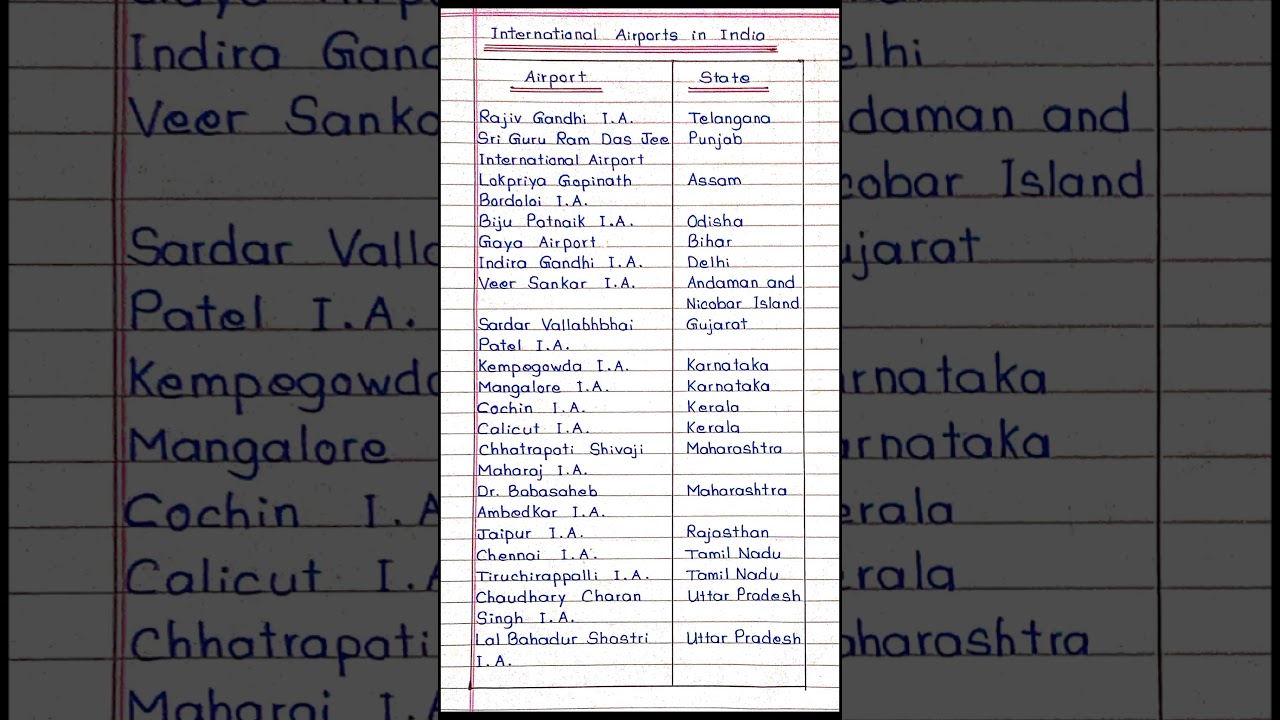 International Airports in India
Airport State
Rajiv Gandhi I.A. Telangana
Sri Guru Ram Das Jee Punjab
International Airport
Lokpriya Gopinath Assam
Bordoloi I.A.
Biju Patnaik I.A. Odisha
Gaya Airport Bihar
Indira Gandhi I.A. Delhi
Veer Sankar I.A. Andaman and
Nicobar Island
Sardar Vallabhbhai Gujarat
Patel I.A.
Kempegowda I.A. Karnataka
Mangalore I.A. Karnataka
Cochin I.A. Kerala
Calicut I.A. Kerala
Chhatrapati Shivaji Maharashtra
Maharaj I.A.
Dr. Babasaheb Maharashtra
Ambedkar I.A.
Jaipur I.A. Rajasthan
Chennai I.A. Tamil Nadu
Tiruchirappalli I.A. Tamil Nadu
Chaudhary Charan Uttar Pradesh
Singh I.A.
Lal Bahadur Shastri Uttar Pradesh
I.A.